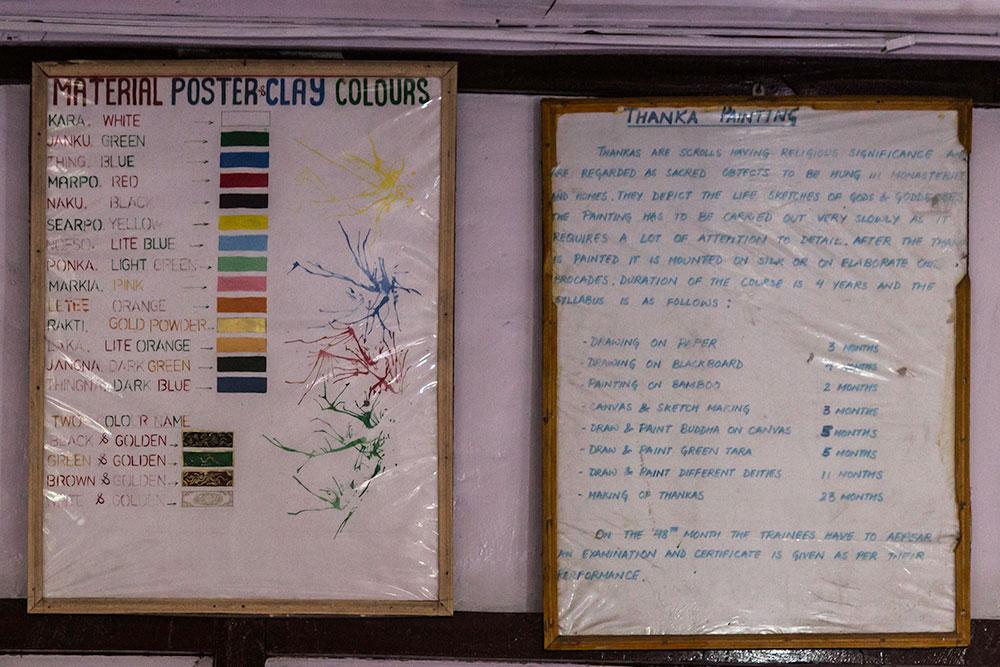 MATERIAL POSTER & CLAY COLOURS
KARA. WHITE
JANKU. GREEN
THING. BLUE
MARPO. RED
NAKU. BLACK
SEARPO. YELLOW
LITE BLUE
PONKA. LIGHT GREEN
MARKIA. PINK
LETEE ORANGE
RAKTI. GOLD POWDER
LITE ORANGE
JANGNA. DARK GREEN
THINGNA. DARK BLUE
TWO COLOUR NAME
BLACK & GOLDEN
GREEN & GOLDEN
BROWN & GOLDEN
WHITE & GOLDEN
THANKA PAINTING
THANKAS ARE SCROLLS HAVING RELIGIOUS SIGNIFICANCE
ARE REGARDED AS SACRED OBJECTS TO BE HUNG IN MONASTERIES
AND HOMES. THEY DEPICT THE LIFE SKETCHES OF GODS & GODDESSES.
THE PAINTING HAS TO BE CARRIED OUT VERY SLOWLY AS IT
REQUIRES A LOT OF ATTENTION TO DETAIL. AFTER THE
IS PAINTED IT IS MOUNTED ON SILK OR ON ELABORATE
BROCADES. DURATION OF THE COURSE IS 4 YEARS AND THE
SYLLABUS IS AS FOLLOWS :
- DRAWING ON PAPER 3 MONTHS
- DRAWING ON BLACKBOARD MONTHS
- PAINTING ON BAMBOO 2 MONTHS
- CANVAS & SKETCH MAKING 3 MONTHS
- DRAW & PAINT BUDDHA ON CANVAS 5 MONTHS
- DRAW & PAINT GREEN TARA 5 MONTHS
- DRAW & PAINT DIFFERENT DEITIES 11 MONTHS
- MAKING OF THANKAS 23 MONTHS
ON THE 48TH MONTH THE TRAINEES HAVE TO APPEAR
AN EXAMINATION AND CERTIFICATE IS GIVEN AS PER THEIR
PERFORMANCE.